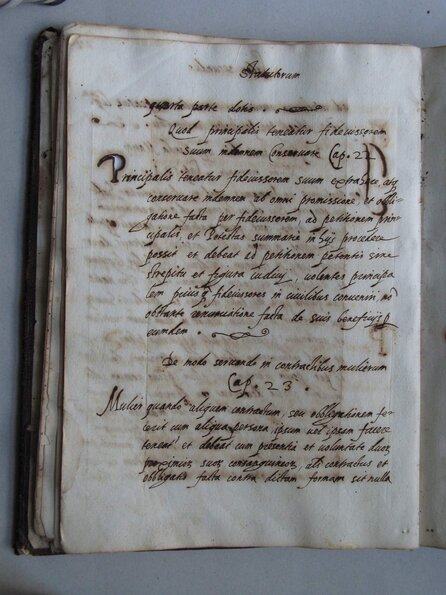 Statutorum
quarta parte dotis.
Quod principalis teneatur fideiussorem
suum indemnem Conservare Cap. 22
Principalis teneatur fideiussorem suum extrahere, atq
conservare indemnem ab omni promissione et obli-
gatione facta per fideiussorem, ad petitionem prin-
cipalis, et Potestas summarie in hijs procedere
possit et debeat ad petitionem petentis sine
strepitu et figura iudicij, volentes principa
lem prius q fideiussores in civilibus conveniri nõ
obstante renuntiatione facta de suis beneficijs p
eumdem.
De modo servando in contractibus mulierum
Cap. 23.
Mulier quando aliquem contractum, seu obbligationem fe-
cerit cum aliqua persona ipsum vel ipsam facere
teneat et debeat cum presentia et voluntate duor
proximior suor consanguineor, ali contractus et
obbligatio facta contra dictam formam sit nulla